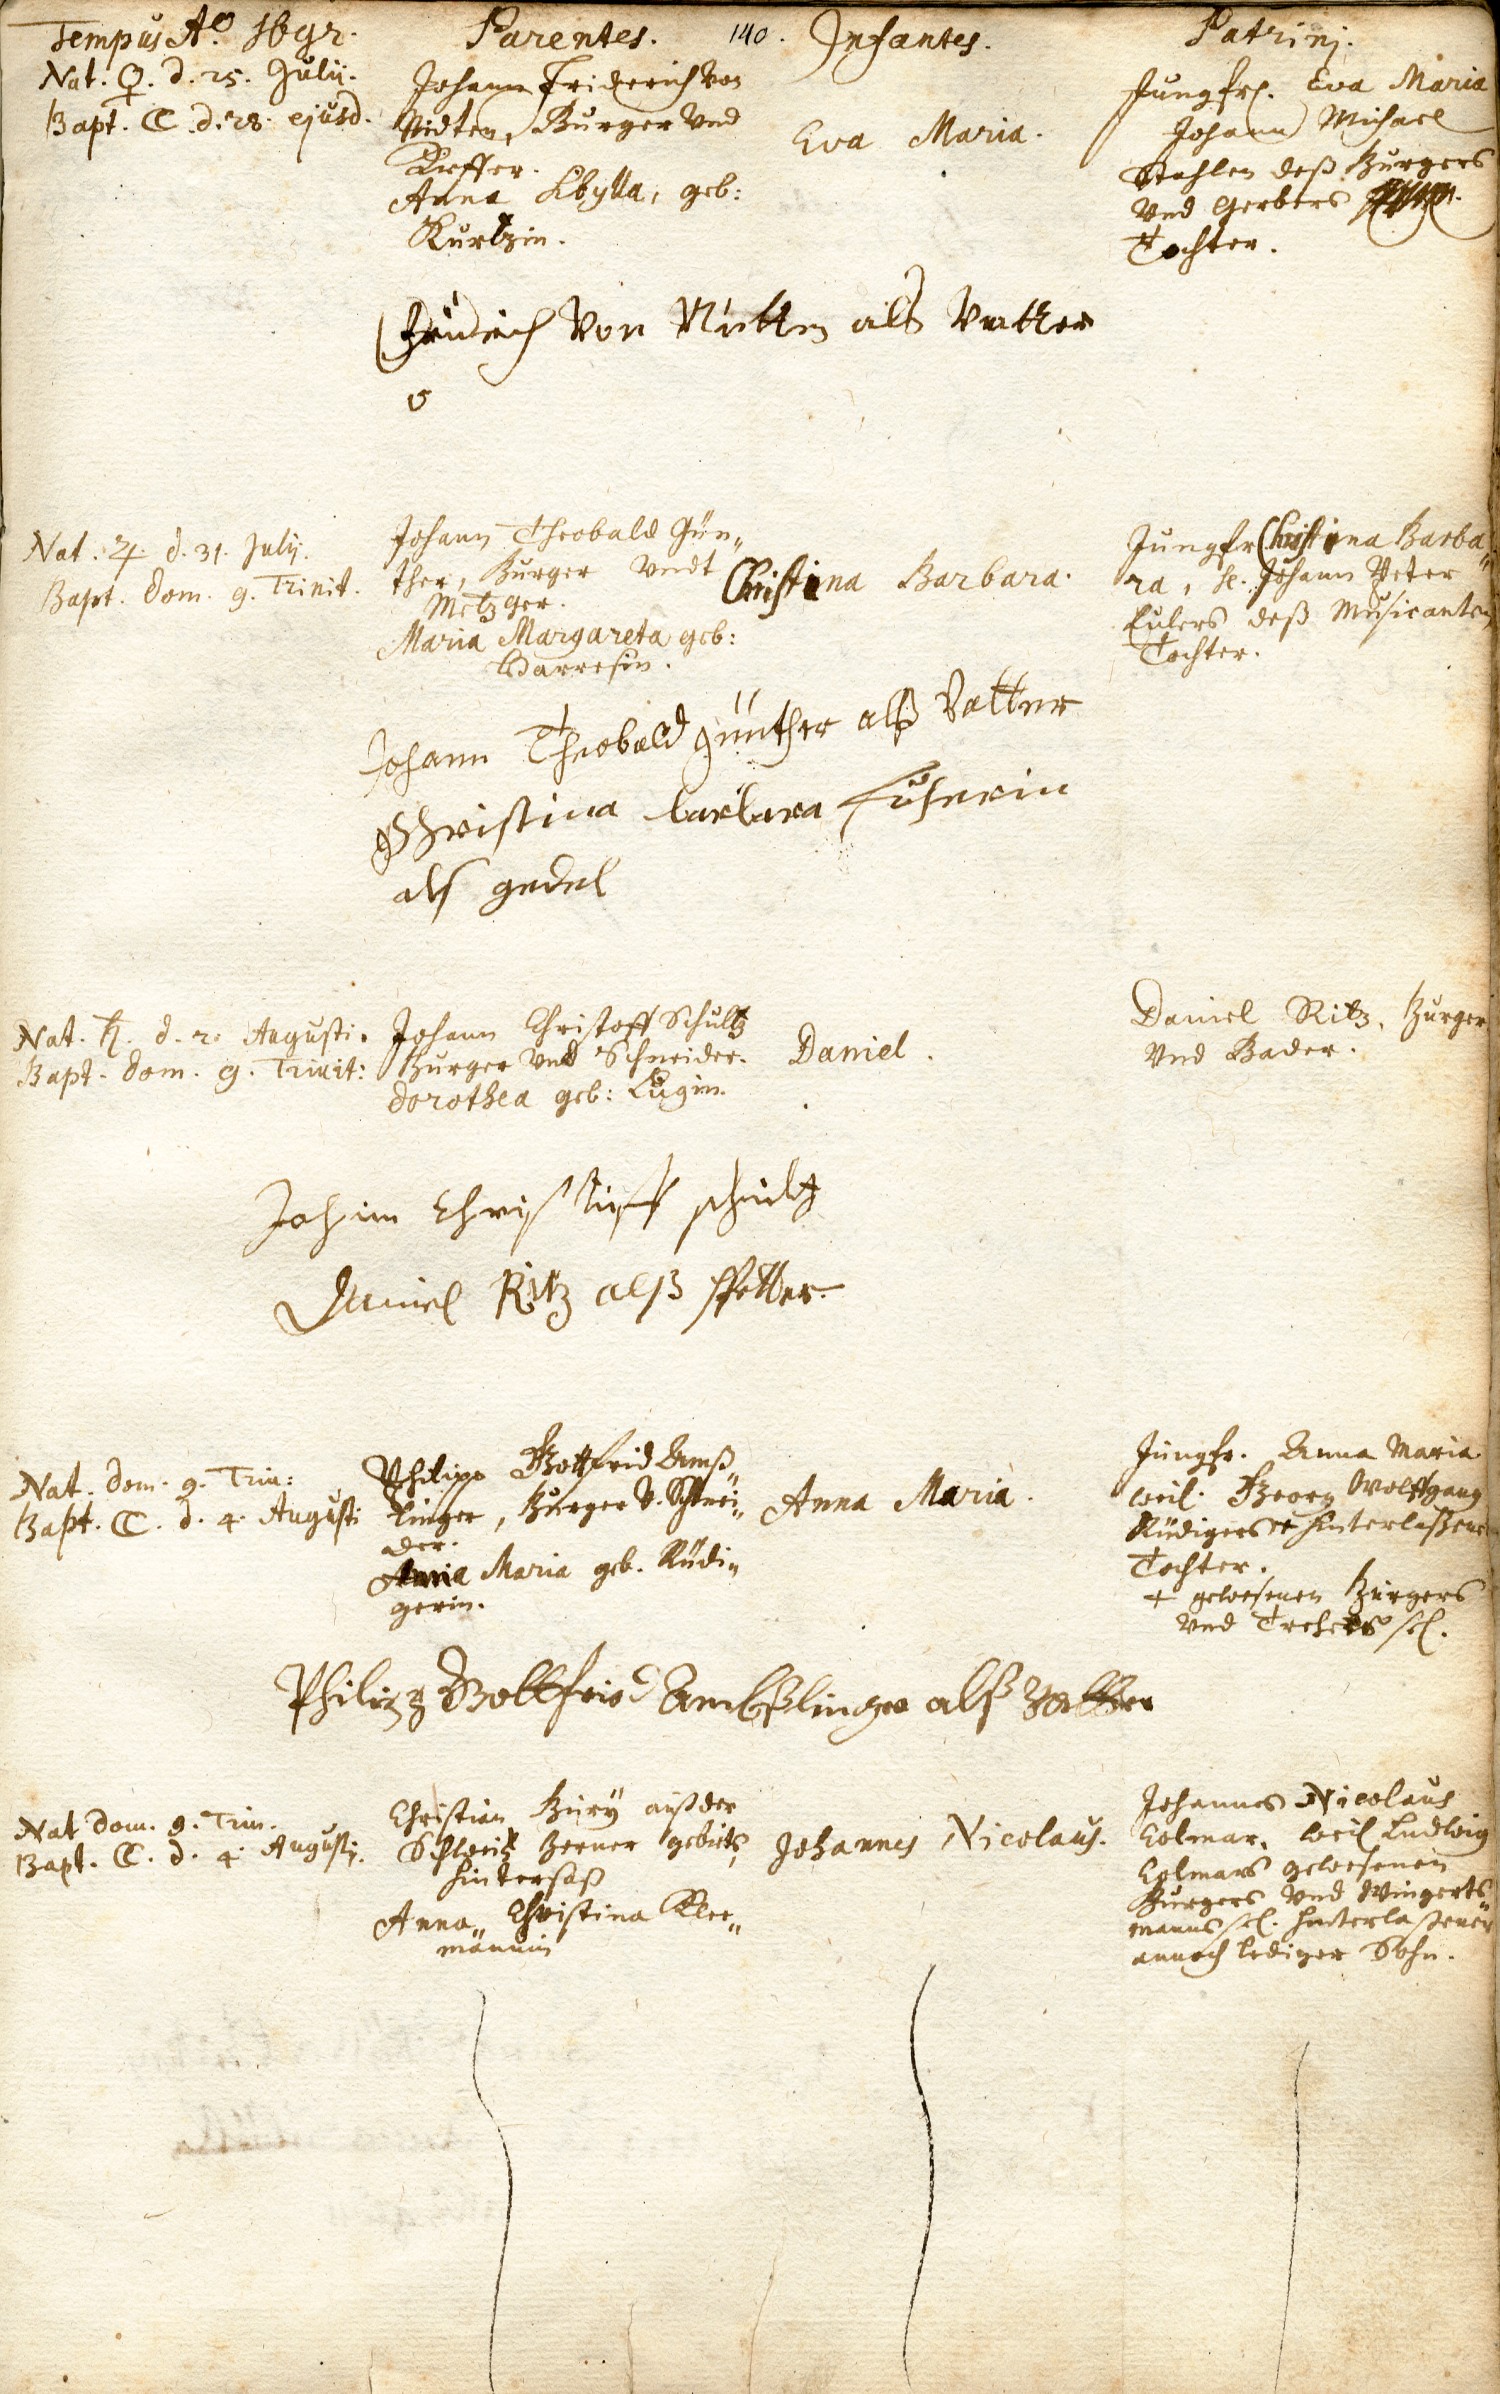 Tempus Aº. 1692. Parentes. 140. Infantes. Patrini.
Nat. ♀. d. 25. Julij.
Bapt. ☾. d. 28. ejusd.
Johann Friderich von
Nidten, Burger Vnd
Anna Sibylla, geb:
Kurtzin.
Eva Maria.
Jungfr. Eva Maria
Johann Michael
Stahlen deß Burgers
Vnd Gerbers
Tochter.
von als Vatter
Nat. ♃. d. 31. Julij.
Bapt. Dom. 9. Trinit.
Johann Theobald Gün„
ther, Burger Vndt
Metzger.
Maria Margareta geb:
Christina Barbara.
Jungfr Christina Barba„
ra, H. Johann Peter
Eulers deß Musicanten
Tochter.
Johann Theobald günther alß Vatter
Christina barbara
als gedel
Nat. ♄. d. 2. Augusti.
Bapt. Dom. 9. Trinit:
Johann Christoff Schultz
Burger Vnd Schneider.
Dorothea geb: Lugin.
Daniel.
Daniel Ritz, Burger
Vnd Bader.
schultz
Daniel Ritz alß Pfetter
Nat. Dom. 9. Trin:
Bapt. ☾. d. 4. Augusti
Philipp Gottfrid Amß„
linger, Burger V. Schnei„
der.
Anna Maria geb. Rüdi„
gerin.
Anna Maria.
Jungfr. Anna Maria
weil. Georg Wolffgang
Rüdigers + hinterlaßene
Tochter.
+ gewesenen Burgers
Vnd sel.
Philipp Gottfrid Ambßlinger alß Vatter
Nat Dom. 9. Trin.
Bapt. ☾. d. 4. Augusti.
Christian Bury auß der
Schweitz Berner gebiets,
Hintersaß
Anna„ Christina Klee„
männin
Johannes Nicolaus.
Johannes Nicolaus
Colmar, weil Ludwig
Colmars gewesenen
Burgers Vnd Wingerts„
manns sel. hinterlaßener
annoch lediger Sohn.